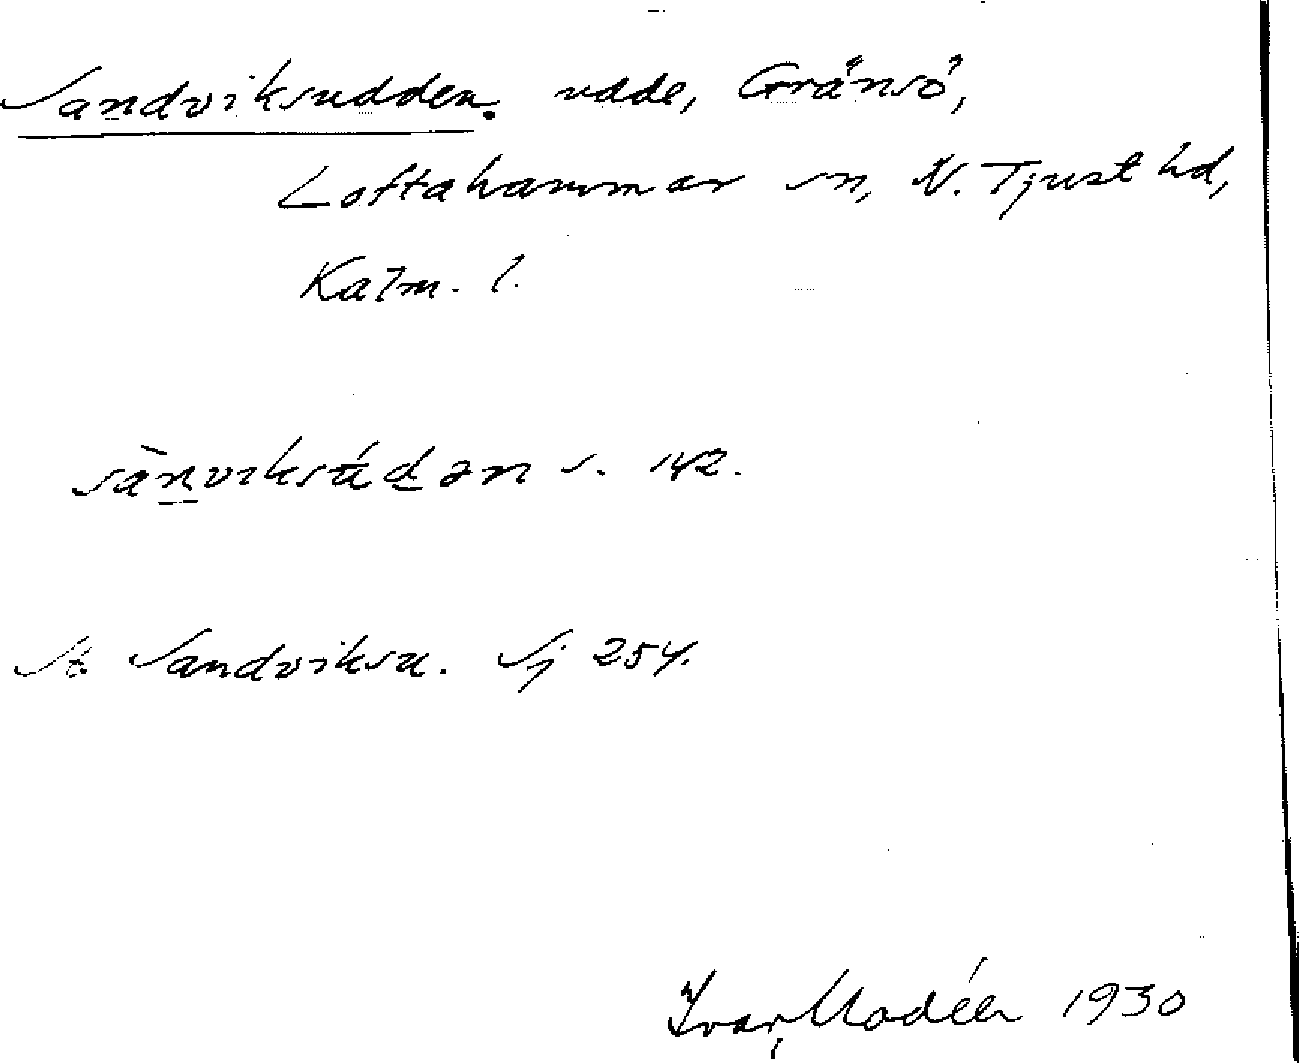 Sandviksudden. udde, Gränsö,
Loftahammar sn, N. Tjust hd,
Kalm. l.
sànviksúdən s. 142.
St Sandviksu. Sj 254.
Ivar Modéer 1930